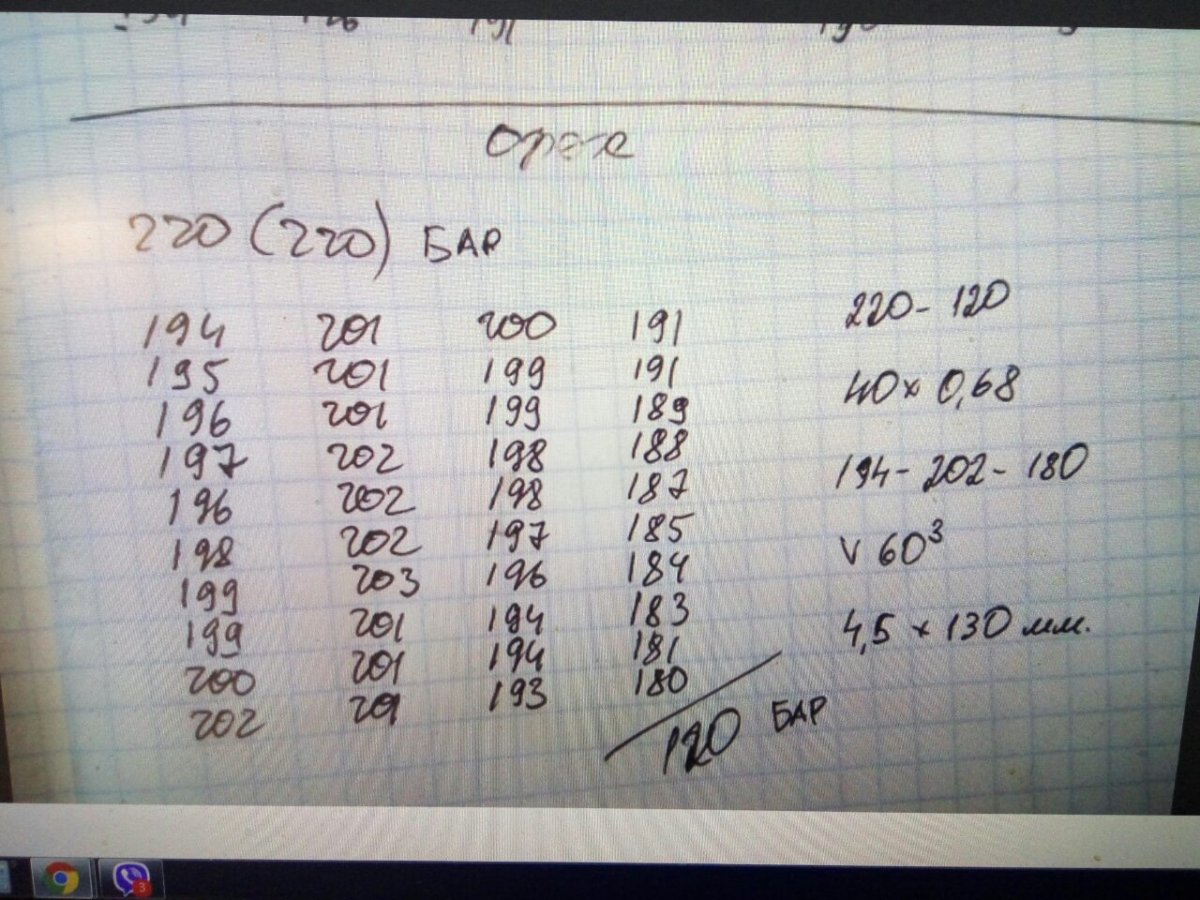 191
Орех
220 (220) БАР
194 201 200 191
195 201 199 191
196 201 199 189
197 202 198 188
196 202 198 187
198 202 197 185
199 203 196 184
199 201 194 183
200 201 194 181
202 201 193 180
120 БАР
220 - 120
40 x 0,68
194 - 202 - 180
V 60³
4,5 x 130 мм.
3